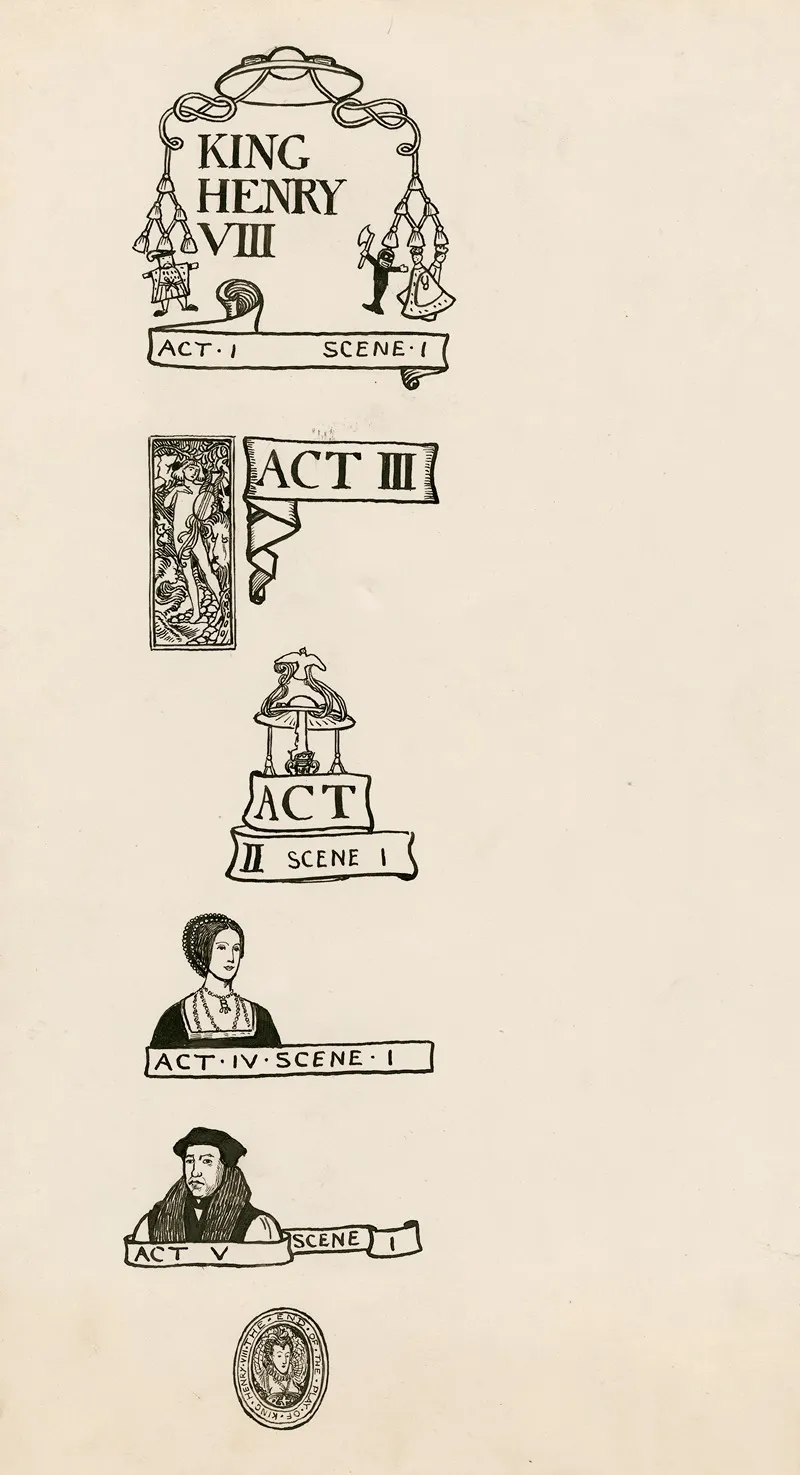 KING
HENRY
VIII
ACT · I SCENE · I
ACT III
ACT
II SCENE I
ACT · IV · SCENE · I
ACT V SCENE I
THE · END · OF · THE · PLAY · OF · KING · HENRY · VIII ·